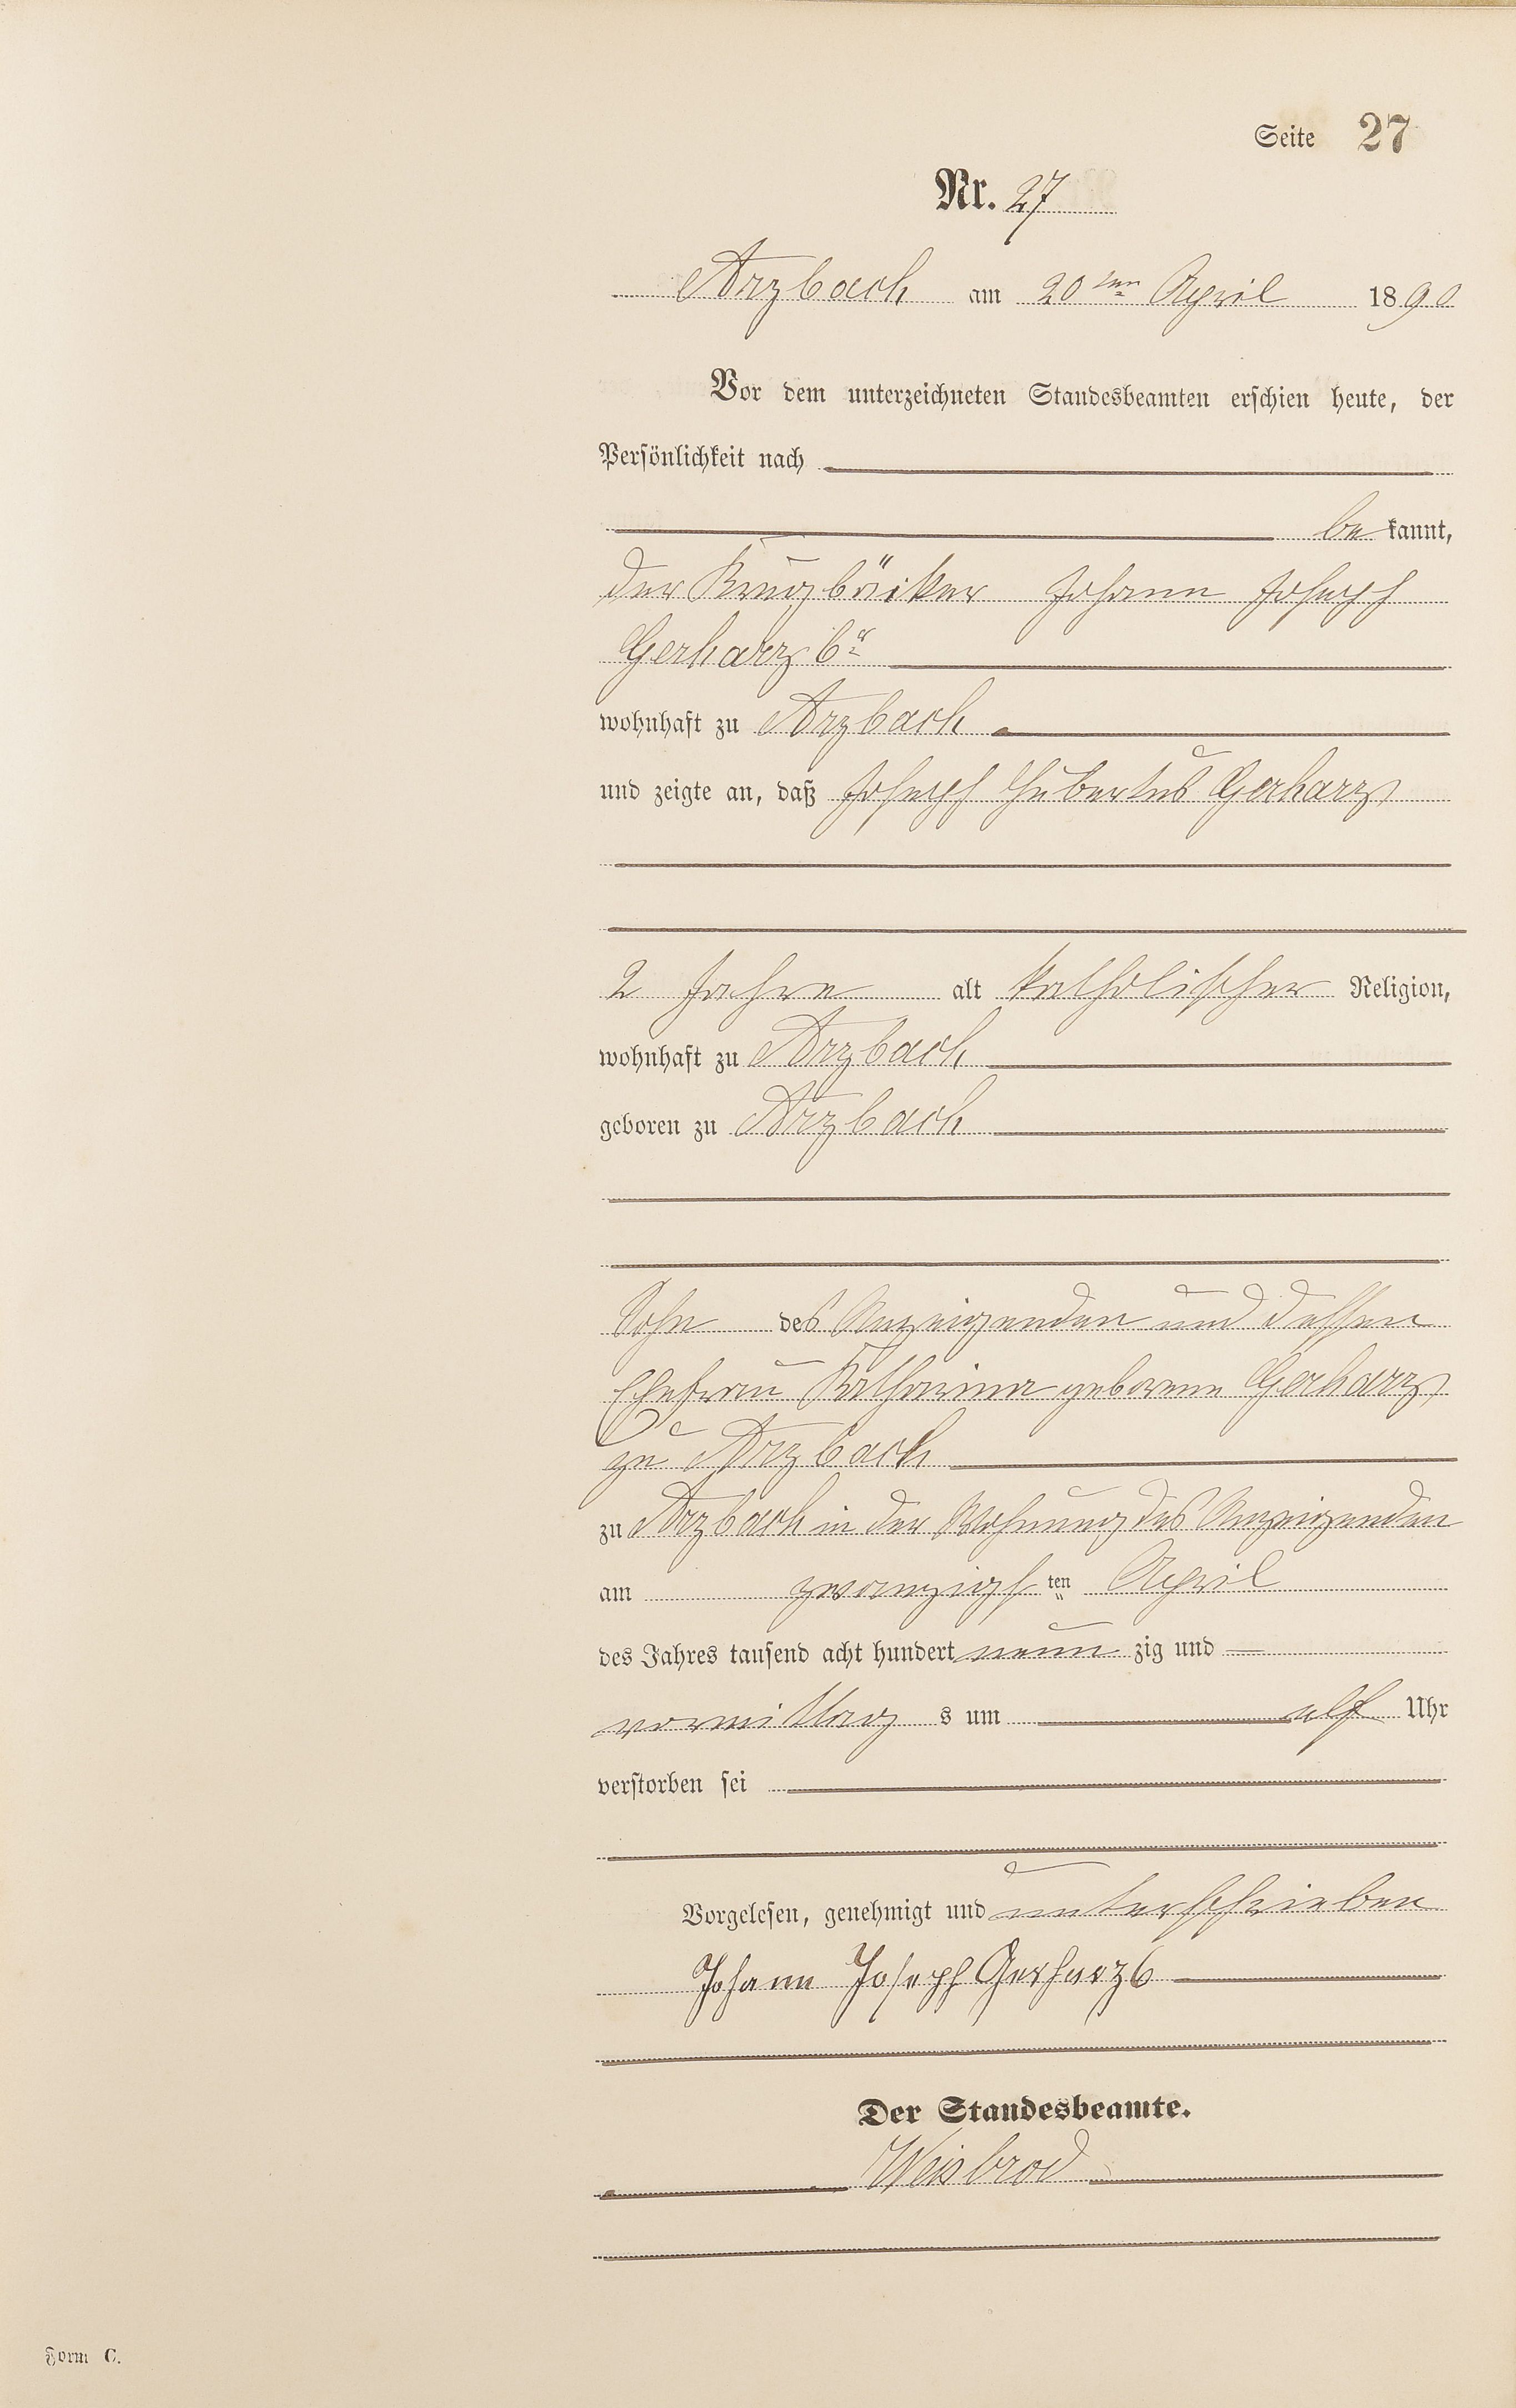 Seite 27
Nr. 27
Arzbach am 20ten April 1890
Vor dem unterzeichneten Standesbeamten erschien heute, der
Persönlichkeit nach
be kannt,
der Krugbäcker Johann Joseph
Gerharz 6r
wohnhaft zu Arzbach
und zeigte an, daß Joseph Hubertus Gerharz
2 Jahre alt katholischer Religion,
wohnhaft zu Arzbach
geboren zu Arzbach
Sohn des Anzeigenden und dessen
Ehefrau Katharina geborene Gerharz
zu Arzbach
zu Arzbach in der Wohnung des Anzeigenden
am zwanzigsten April
des Jahres tausend acht hundert neun zig und
vormittag s um elf Uhr
verstorben sei
Vorgelesen, genehmigt und unterschrieben
Johann Joseph Gerharz 6
Der Standesbeamte.
Weisbrod
Form C.